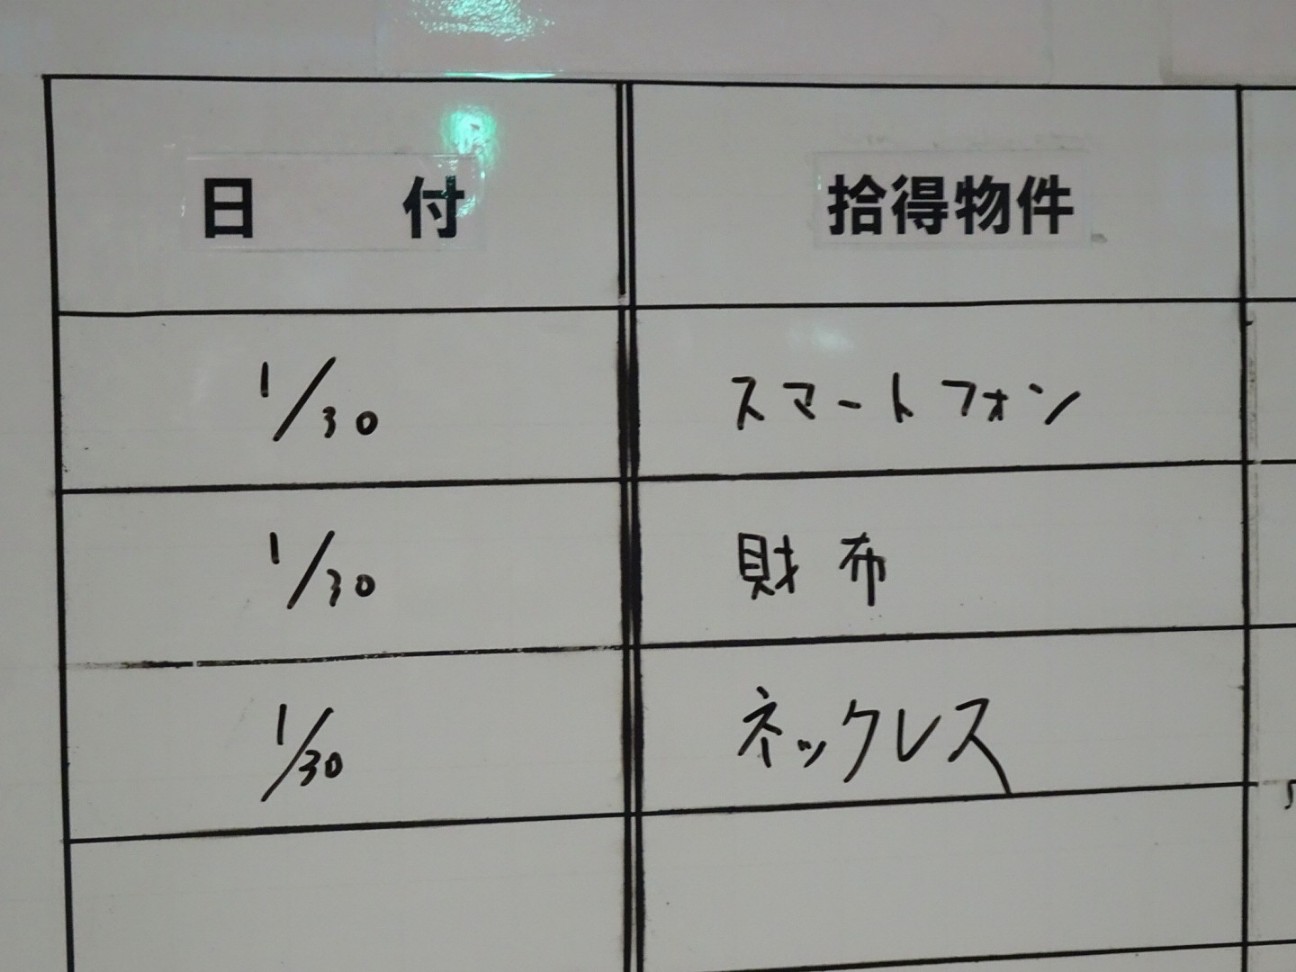 日 付 拾得物件
1/30 スマートフォン
1/30 財布
1/30 ネックレス